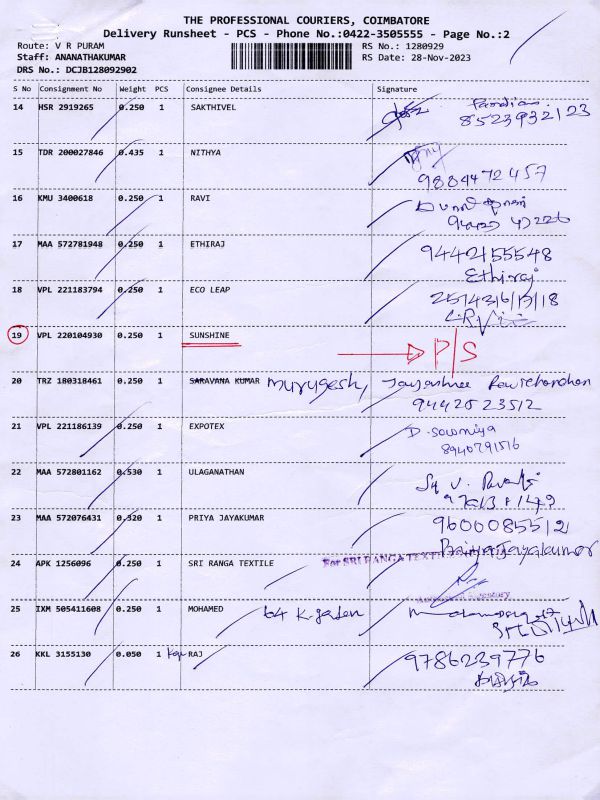 THE PROFESSIONAL COURIERS, COIMBATORE
Delivery Runsheet - PCS - Phone No.:0422-3505555 - Page No.:2
Route: V R PURAM RS No.: 1280929
Staff: ANANATHAKUMAR RS Date: 28-Nov-2023
DRS No.: DCJB128092902
S No Consignment No Weight PCS Consignee Details Signature
14 HSR 2919265 0.250 1 SAKTHIVEL
8523932123
15 TDR 200027846 0.435 1 NITHYA
9884472457
16 KMU 3400618 0.250 1 RAVI
17 MAA 572781948 0.250 1 ETHIRAJ 9442155548
Ethiraj
18 VPL 221183794 0.250 1 ECO LEAP
19 VPL 220104930 0.250 1 SUNSHINE
P/S
20 TRZ 180318461 0.250 1 SARAVANA KUMAR Murugesh,
9442523512
21 VPL 221186139 0.250 1 EXPOTEX D. Sowmiya
8940791516
22 MAA 572801162 0.530 1 ULAGANATHAN
23 MAA 572076431 0.320 1 PRIYA JAYAKUMAR 9600085512
Priya Jayakumar
24 APK 1256096 0.250 1 SRI RANGA TEXTILE For SRI RANGA TEXTILE
25 IXM 505411608 0.250 1 MOHAMED 64 K.
26 KKL 3155130 0.050 1 RAJ 9786239776